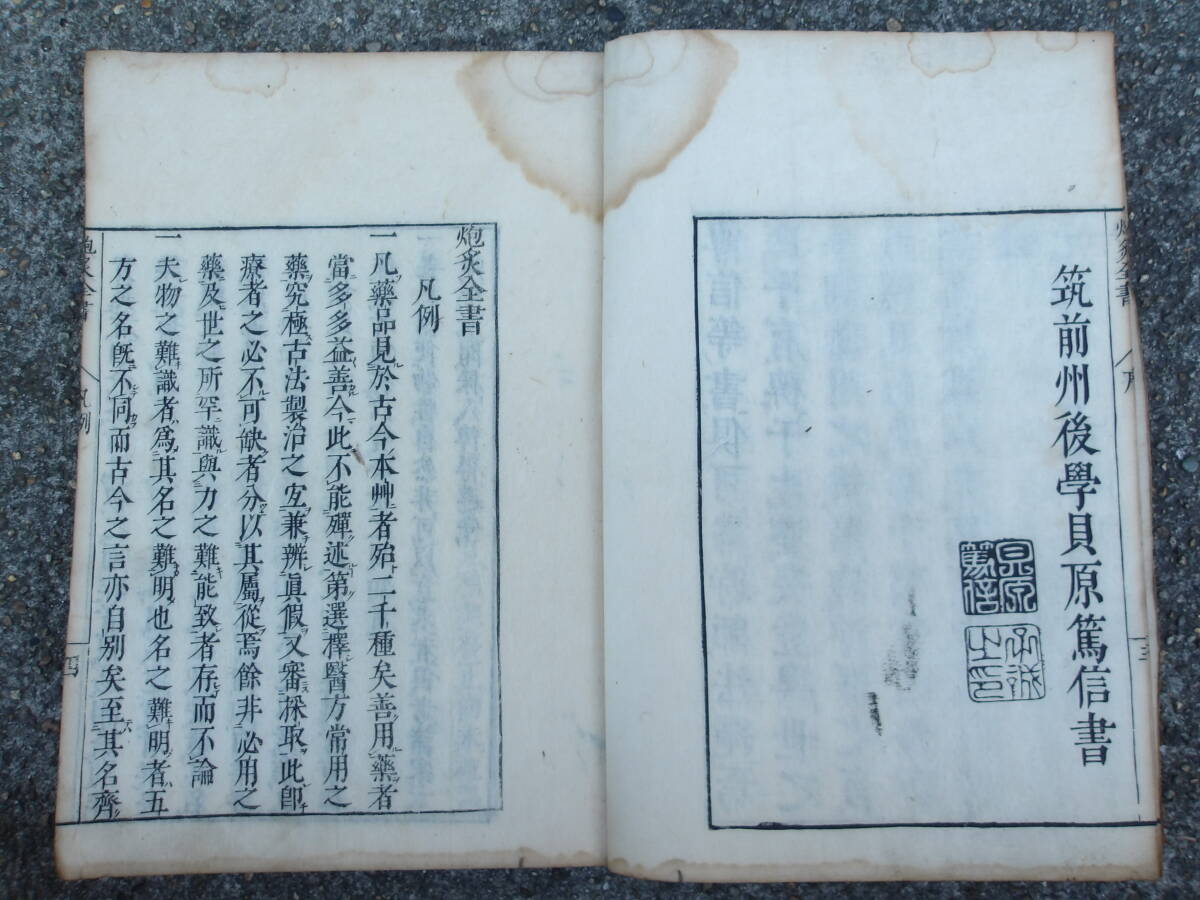 筑前州後學貝原篤信書
炮炙全書
凡例
一凡藥品見於古今本艸者殆二千種矣善用藥者
當多多益善今此不能殫述第選擇醫方常用之
藥究極古法製治之宐兼辨眞假又審採取此卽
療者之必不可缺者分以其屬從焉餘非必用之
藥及世之所罕識與力之難能致者存而不論
一夫物之難識者爲其名之難明也名之難明者五
方之名旣不同而古今之言亦自別矣至其名齊
凡例
四